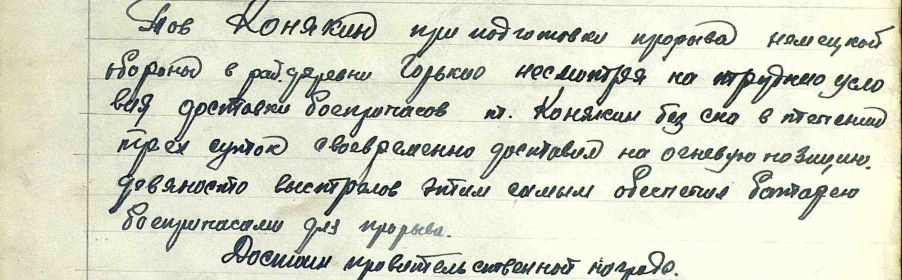 Тов Конякин при подготовки прорыва немецкой
обороны в рай. деревни Горькио несмотря на трудние усло
вия доставки боеприпасов т. Конякин без сна в течении
трех суток своевременно доставил на огневую позицию.
девяносто выстрелов этим самым обеспечил батарею
боеприпасами для прорыва.
Достоин правительственной награде.